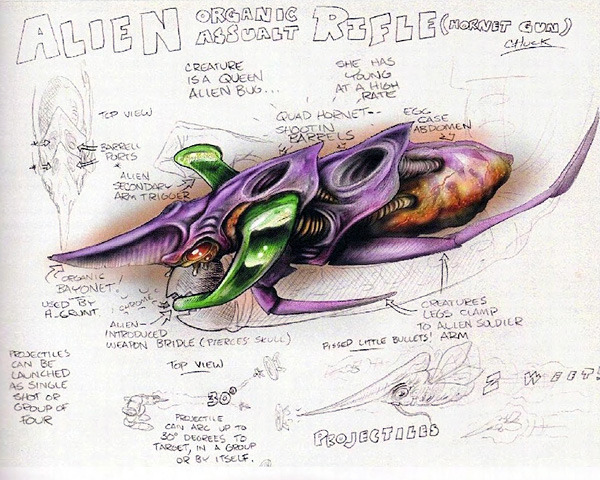 ALIEN ORGANIC ASSUALT RIFLE (HORNET GUN)
CHUCK
CREATURE
IS A QUEEN
ALIEN BUG...
SHE HAS
YOUNG
AT A HIGH
RATE
TOP VIEW
BARRELL
PORTS
QUAD HORNET--
SHOOTIN
BARRELS
EGG
CASE
ABDOMEN
ALIEN
SECONDARY
ARM TRIGGER
ORGANIC
BAYONET!
USED BY
A-GRUNT.
CHROME
ALIEN-
INTRODUCED
WEAPON BRIDLE (PIERCES SKULL)
CREATURES
LEGS CLAMP
TO ALIEN SOLDIER
ARM
PROJECTILES
CAN BE
LAUNCHED
AS SINGLE
SHOT OR
GROUP OF
FOUR
TOP VIEW
30°
PROJECTILE
CAN ARC UP TO
30° DEGREES TO
TARGET, IN A GROUP
OR BY ITSELF.
PISSED LITTLE BULLETS!
ZWEET!
PROJECTILES